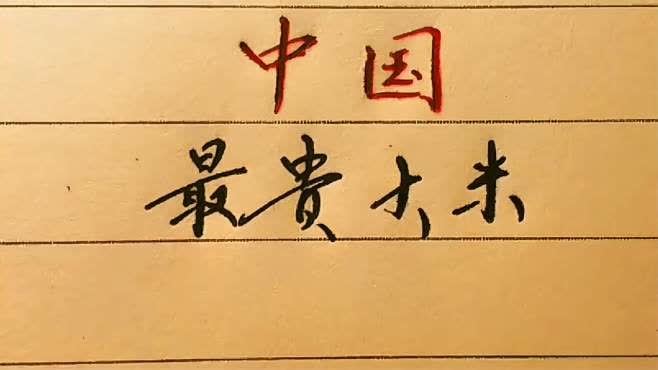 中国
最貴大米